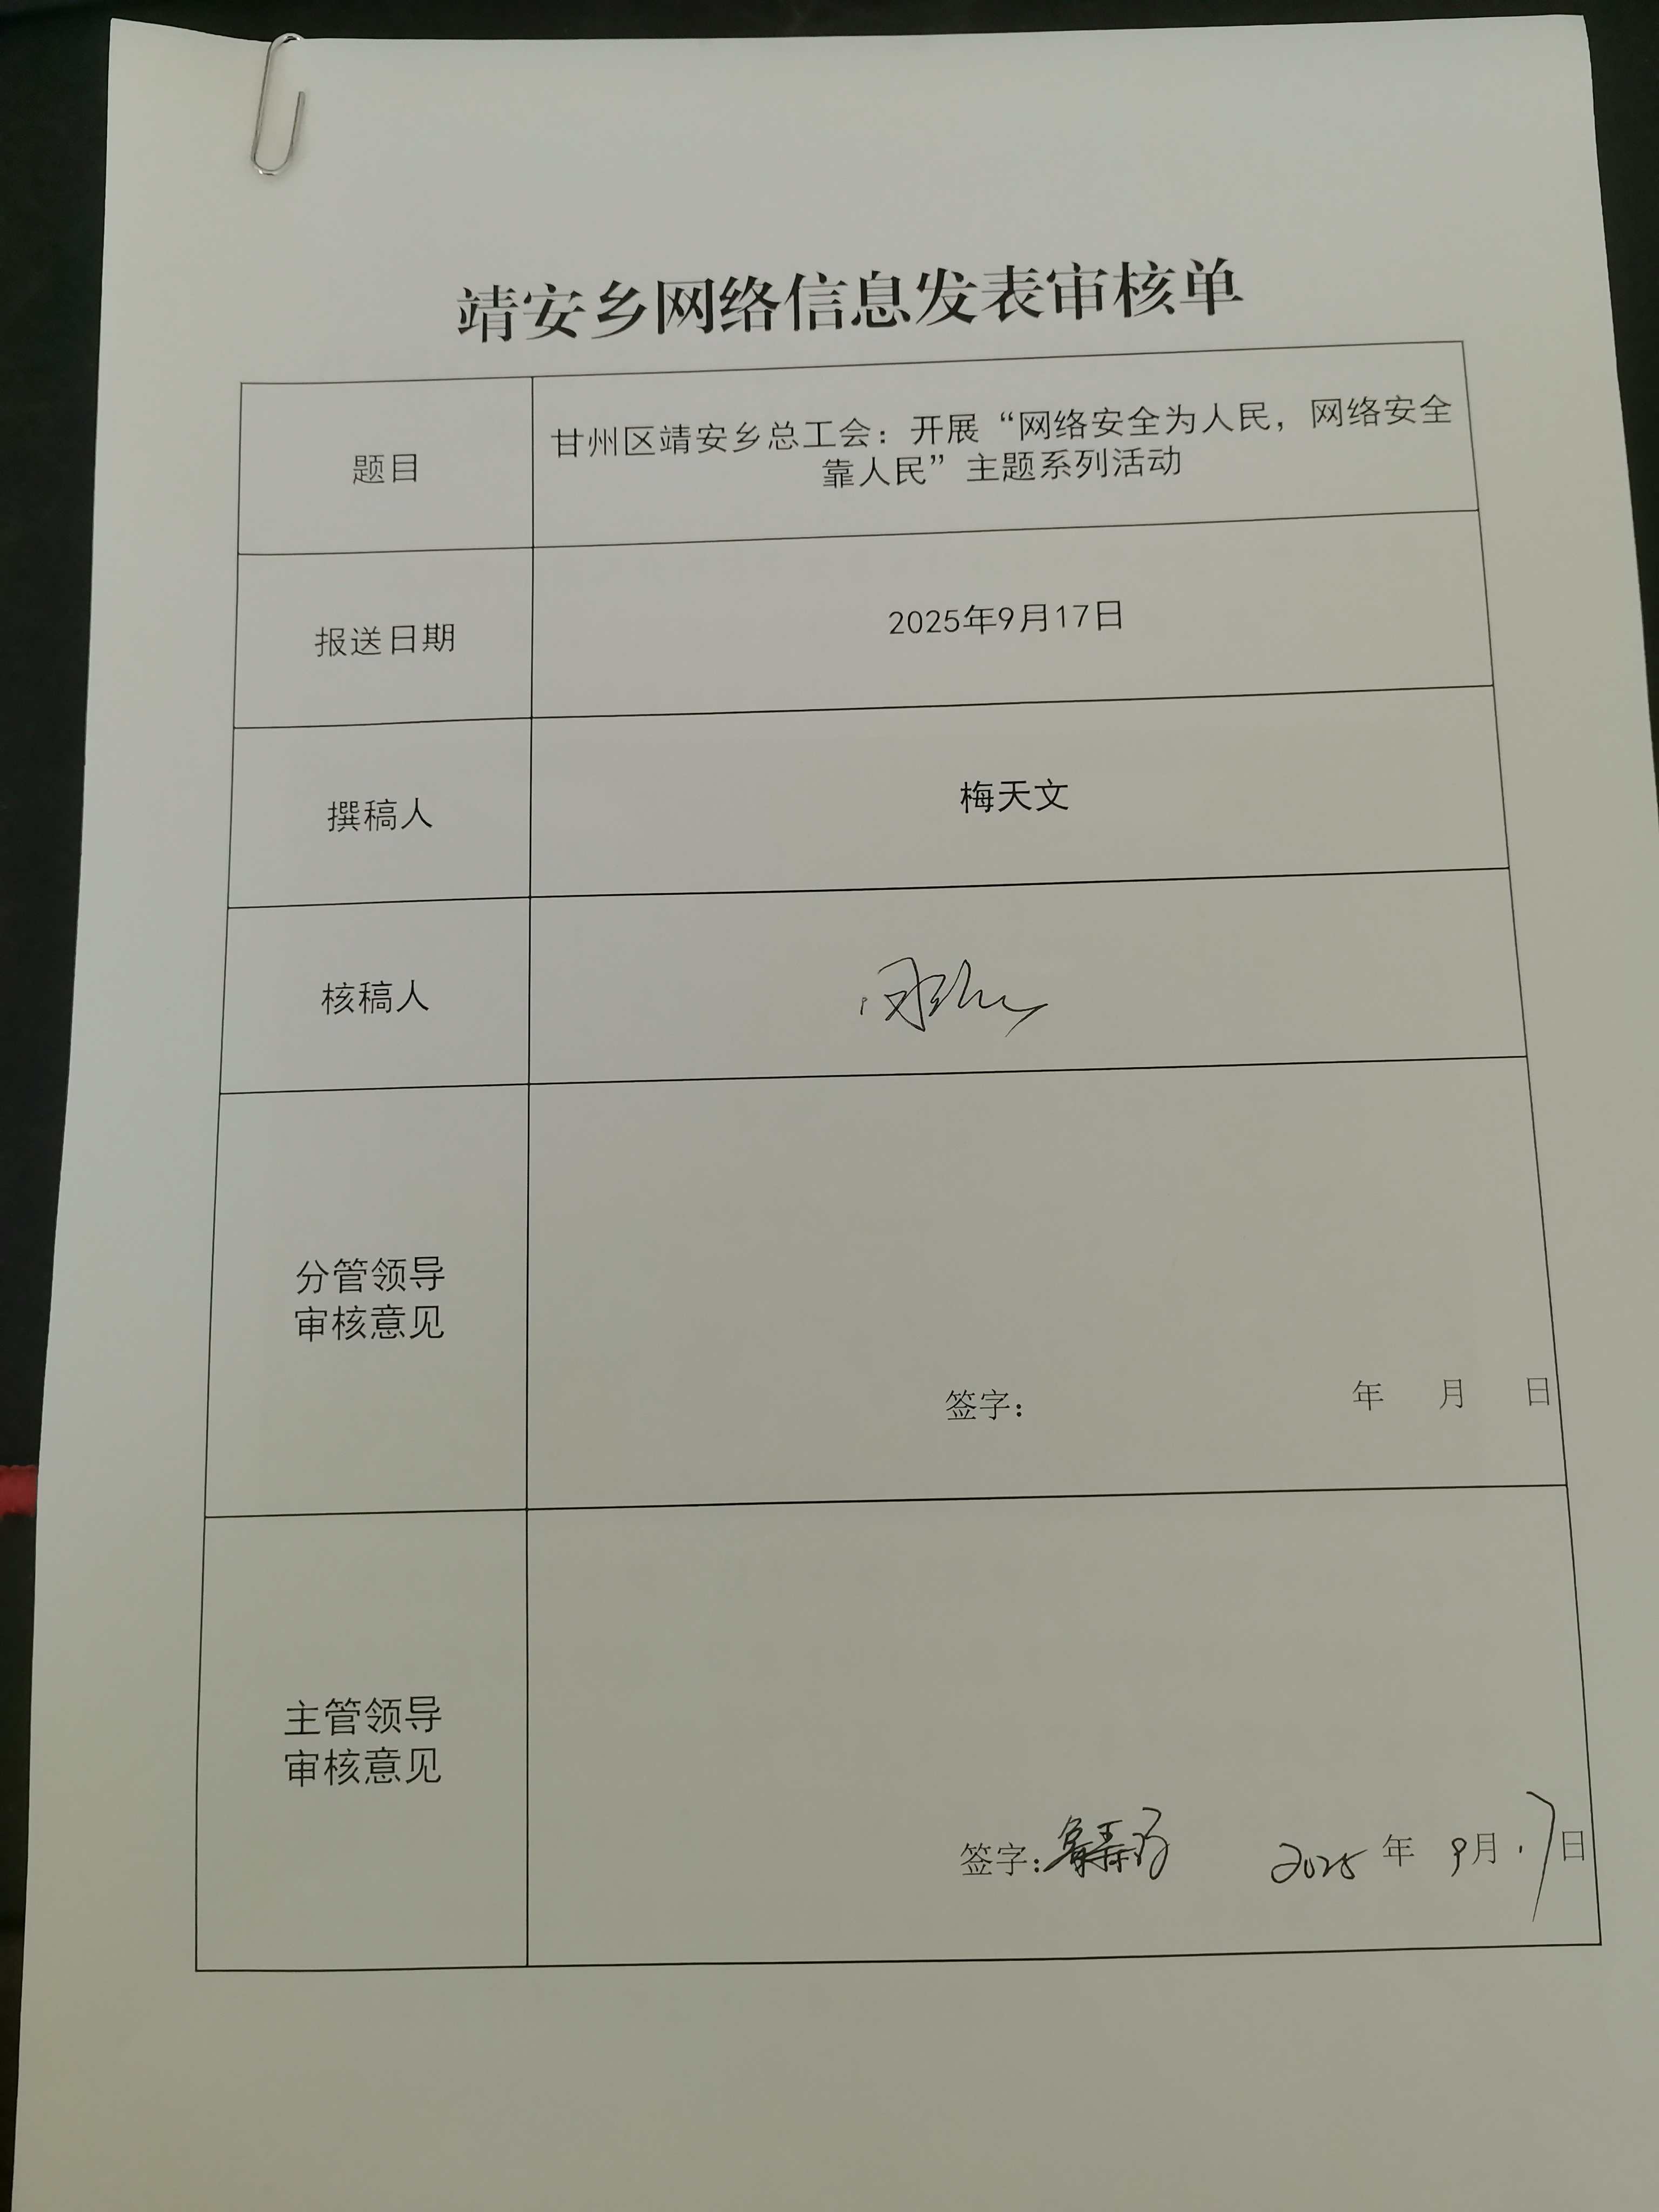 靖安乡网络信息发表审核单
题目
甘州区靖安乡总工会：开展“网络安全为人民，网络安全
靠人民”主题系列活动
报送日期
2025年9月17日
撰稿人
梅天文
核稿人
分管领导
审核意见
签字： 年 月 日
主管领导
审核意见
签字： 2025年 9月17日